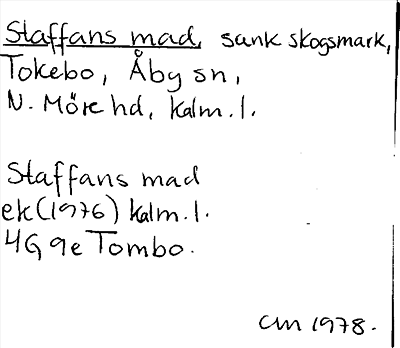 Staffans mad, sank skogsmark,
Tokebo, Åby sn,
N. Möre hd, Kalm. l.
Staffans mad
ek (1976) Kalm. l.
4G 9e Tombo.
CM 1978.